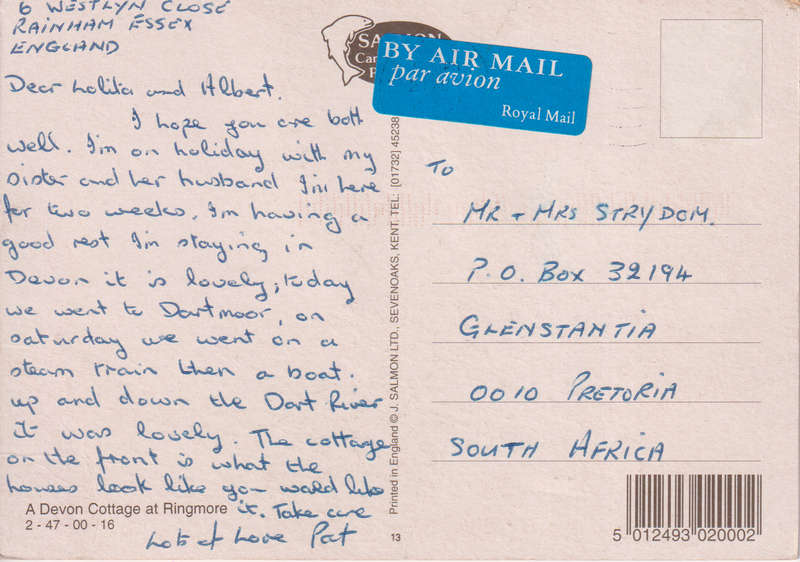 6 WESTLYN CLOSE
RAINHAM ESSEX
ENGLAND
Dear Lolita and Albert.
I hope you are both
well. I'm on holiday with my
sister and her husband I'm here
for two weeks. I'm having a
good rest I'm staying in
Devon it is lovely, today
we went to Dartmoor, on
saturday we went on a
steam train then a boat.
up and down the Dart River
It was lovely. The cottage
on the front is what the
houses look like you would like
it. Take care
Lots of Love Pat
A Devon Cottage at Ringmore
2 - 47 - 00 - 16
SALMON
BY AIR MAIL
par avion
Royal Mail
Printed in England © J. SALMON LTD., SEVENOAKS, KENT. TEL: [01732] 45238
13
To
MR + MRS STRYDOM.
P.O. BOX 32194
GLENSTANTIA
0010 PRETORIA
SOUTH AFRICA
5 012493 020002